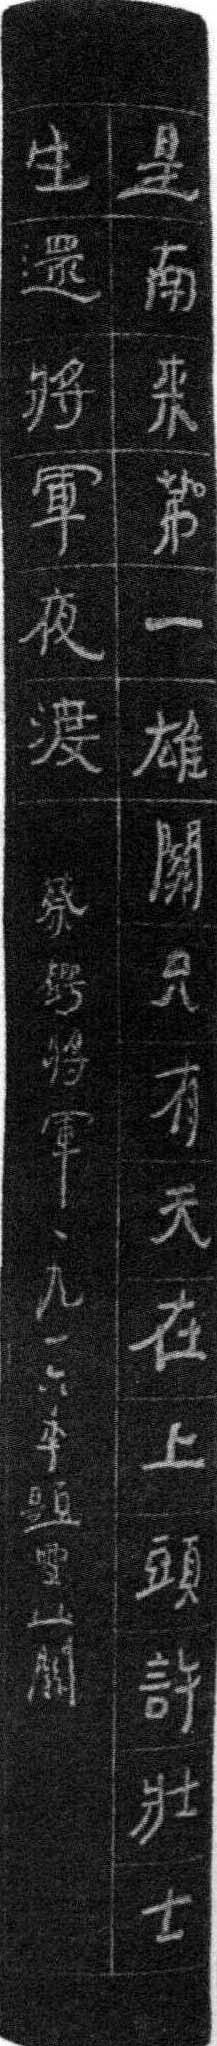 是南来第一雄關只有天在上頭許壯士
生還將軍夜渡
蔡鍔將軍一九一六年題雪山關